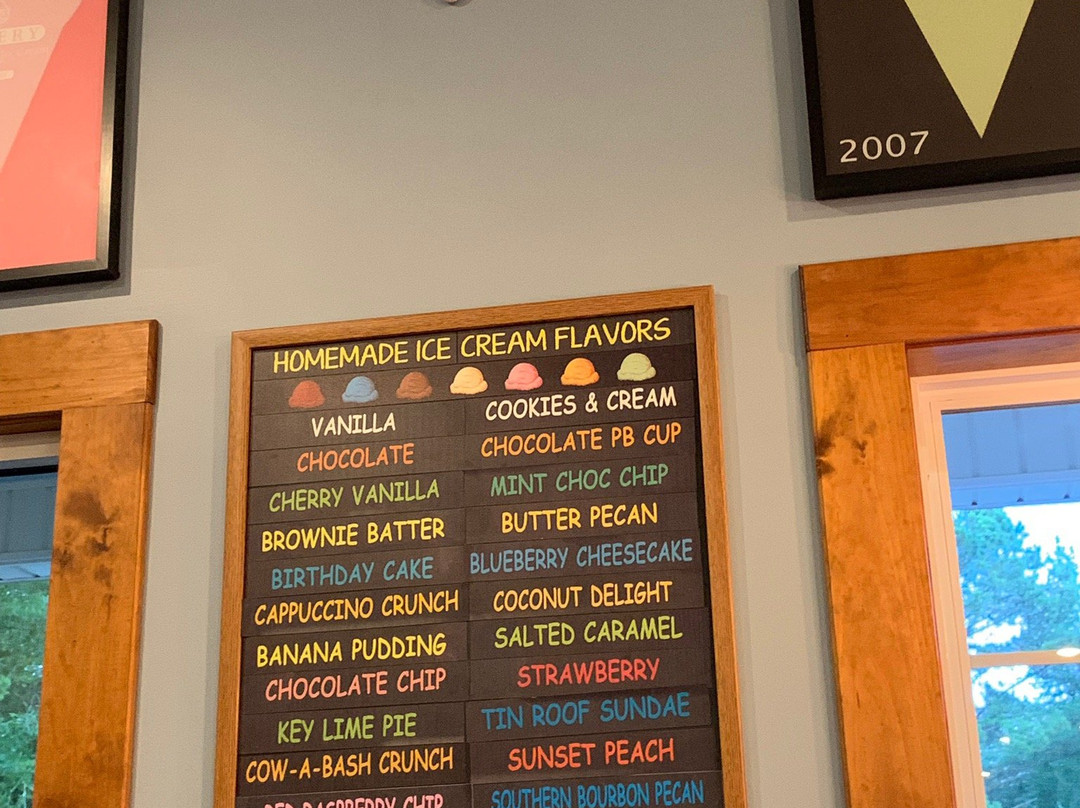 ERY
2007
HOMEMADE ICE CREAM FLAVORS
VANILLA
COOKIES & CREAM
CHOCOLATE
CHOCOLATE PB CUP
CHERRY VANILLA
MINT CHOC CHIP
BROWNIE BATTER
BUTTER PECAN
BIRTHDAY CAKE
BLUEBERRY CHEESECAKE
CAPPUCCINO CRUNCH
COCONUT DELIGHT
BANANA PUDDING
SALTED CARAMEL
CHOCOLATE CHIP
STRAWBERRY
KEY LIME PIE
TIN ROOF SUNDAE
COW-A-BASH CRUNCH
SUNSET PEACH
RED RASPBERRY CHIP
SOUTHERN BOURBON PECAN